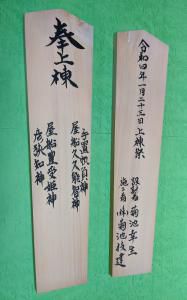 奉上棟
手置帆負神
屋船久久能智神
屋船豊受姫神
彦狭知神
令和四年一月二十三日上棟祭
設計者 菊池幸生
施工者 ㈱菊池技建